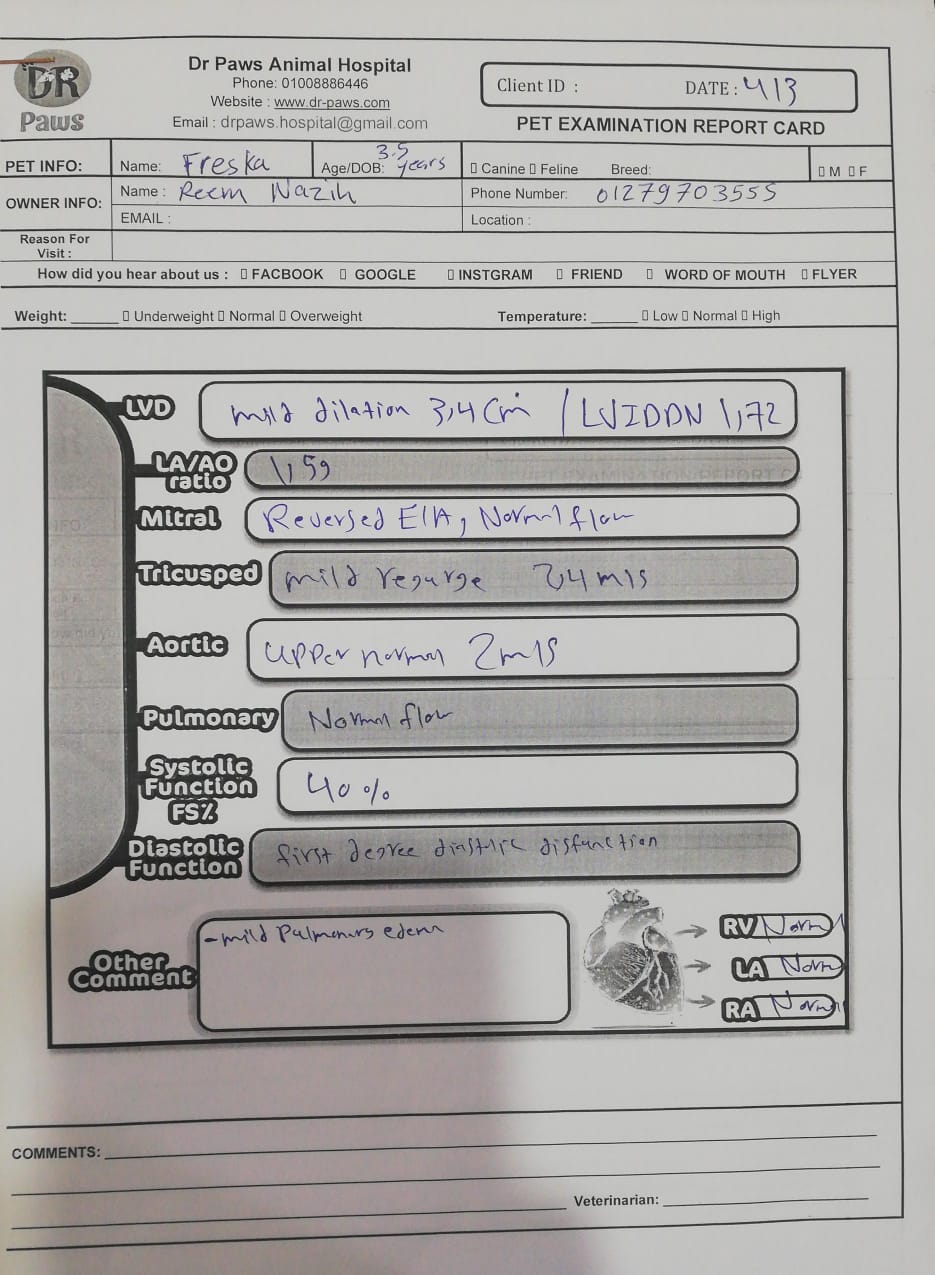 DR
Paws
Dr Paws Animal Hospital
Phone: 01008886446
Website : www.dr-paws.com
Email : drpaws.hospital@gmail.com
Client ID : DATE : 4/3
PET EXAMINATION REPORT CARD
PET INFO: Name: Freska Age/DOB: 3.5 years Canine Feline Breed: M F
OWNER INFO: Name : Reem Nazih Phone Number: 01279703555
EMAIL : Location :
Reason For Visit :
How did you hear about us : FACBOOK GOOGLE INSTGRAM FRIEND WORD OF MOUTH FLYER
Weight: ______ Underweight Normal Overweight Temperature: ______ Low Normal High
LVD mild dilation 3,4 Cm / LVIDDN 1,72
LA/AO ratio 1,59
Mitral Reversed E/A, Normal flow
Tricusped mild regurge 2,4 m/s
Aortic upper normal 2m/s
Pulmonary Normal flow
Systolic Function FS% 40 %
Diastolic Function first degree diastolic disfunction
Other Comment - mild Pulmonary edem
RV Norm
LA Norm
RA Norm
COMMENTS:
Veterinarian: